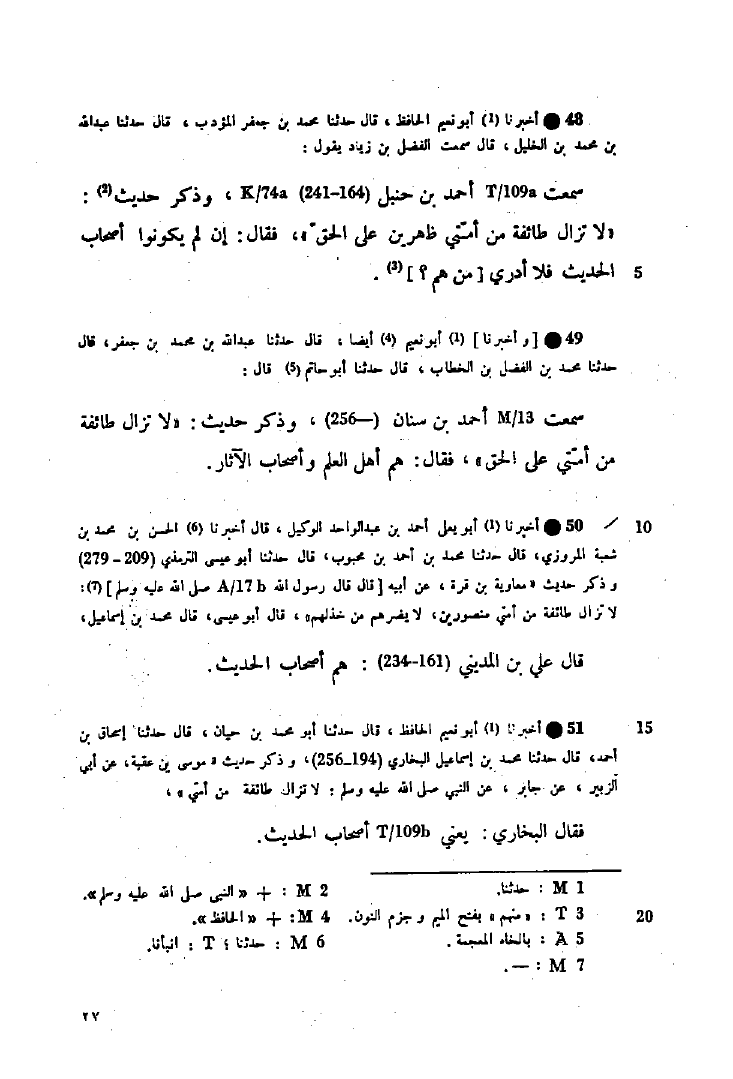 48 ● أخبرنا (1) أبو نعيم الحافظ ، قال حدثنا محمد بن جعفر المؤدب ، قال حدثنا عبدالله
بن محمد بن الخليل ، قال سمعت الفضل بن زياد يقول :
سمعت T/109a أحمد بن حنبل (164–241) K/74a ، وذكر حديث(2) :
«لا تزال طائفة من أمتي ظاهرين على الحق»، فقال: إن لم يكونوا أصحاب
الحديث فلا أدري [من هم ؟](3) . 5
49 ● [وأخبرنا] (1) أبو نعيم (4) أيضا ، قال حدثنا عبدالله بن محمد بن جعفر، قال
حدثنا محمد بن الفضل بن الخطاب ، قال حدثنا أبو حاتم (5) قال :
سمعت M/13 أحمد بن سنان (—256) ، وذكر حديث : «لا تزال طائفة
من أمتي على الحق» ، فقال: هم أهل العلم وأصحاب الآثار.
50 ● أخبرنا (1) أبو يعلى أحمد بن عبدالواحد الوكيل ، قال أخبرنا (6) الحسن بن محمد بن / 10
شعبة المروزي، قال حدثنا محمد بن أحمد بن محبوب، قال حدثنا أبو عيسى الترمذي (209 – 279)
وذكر حديث «معاوية بن قرة ، عن أبيه [قال قال رسول الله A/17 b صلى الله عليه وسلم] (7):
لا تزال طائفة من أمتي منصورين، لا يضرهم من خذلهم» ، قال أبو عيسى، قال محمد بن إسماعيل،
قال علي بن المديني (161–234) : هم أصحاب الحديث.
51 ● أخبرنا (1) أبو نعيم الحافظ ، قال حدثنا أبو محمد بن حيان ، قال حدثنا إسحاق بن 15
أحمد، قال حدثنا محمد بن إسماعيل البخاري (194–256)، وذكر حديث «موسى بن عقبة، عن أبي
الزبير ، عن جابر ، عن النبي صلى الله عليه وسلم : لا تزال طائفة من أمتي» ،
فقال البخاري : يعني T/109b أصحاب الحديث.
1 M : حدثنا. 2 M : + «النبي صلى الله عليه وسلم».
3 T : «منهم» بفتح الميم وجزم النون. 4 M: + «الحافظ». 20
5 A : بالخاء المعجمة . 6 M : حدثنا ؛ T : انبأنا.
7 M : —.
٢٧